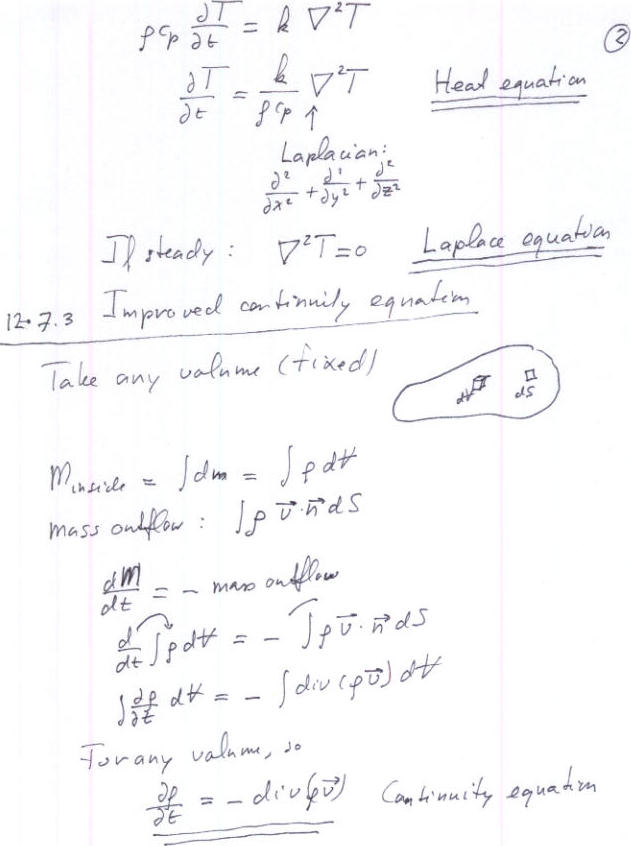 ρ cp ∂T/∂t = k ∇²T
②
∂T/∂t = k/(ρ cp) ∇²T Heat equation
↑
Laplacian:
∂²/∂x² + ∂²/∂y² + ∂²/∂z²
If steady: ∇²T=0 Laplace equation
12.7.3 Improved continuity equation
Take any volume (fixed)
dV dS
Minside = ∫dm = ∫ρ dV
mass outflow: ∫ρ v⃗·n⃗ dS
dM/dt = - mass outflow
d/dt ∫ρ dV = - ∫ρ v⃗·n⃗ dS
∫∂ρ/∂t dV = - ∫div(ρv⃗) dV
For any volume, so
∂ρ/∂t = - div(ρv⃗) Continuity equation